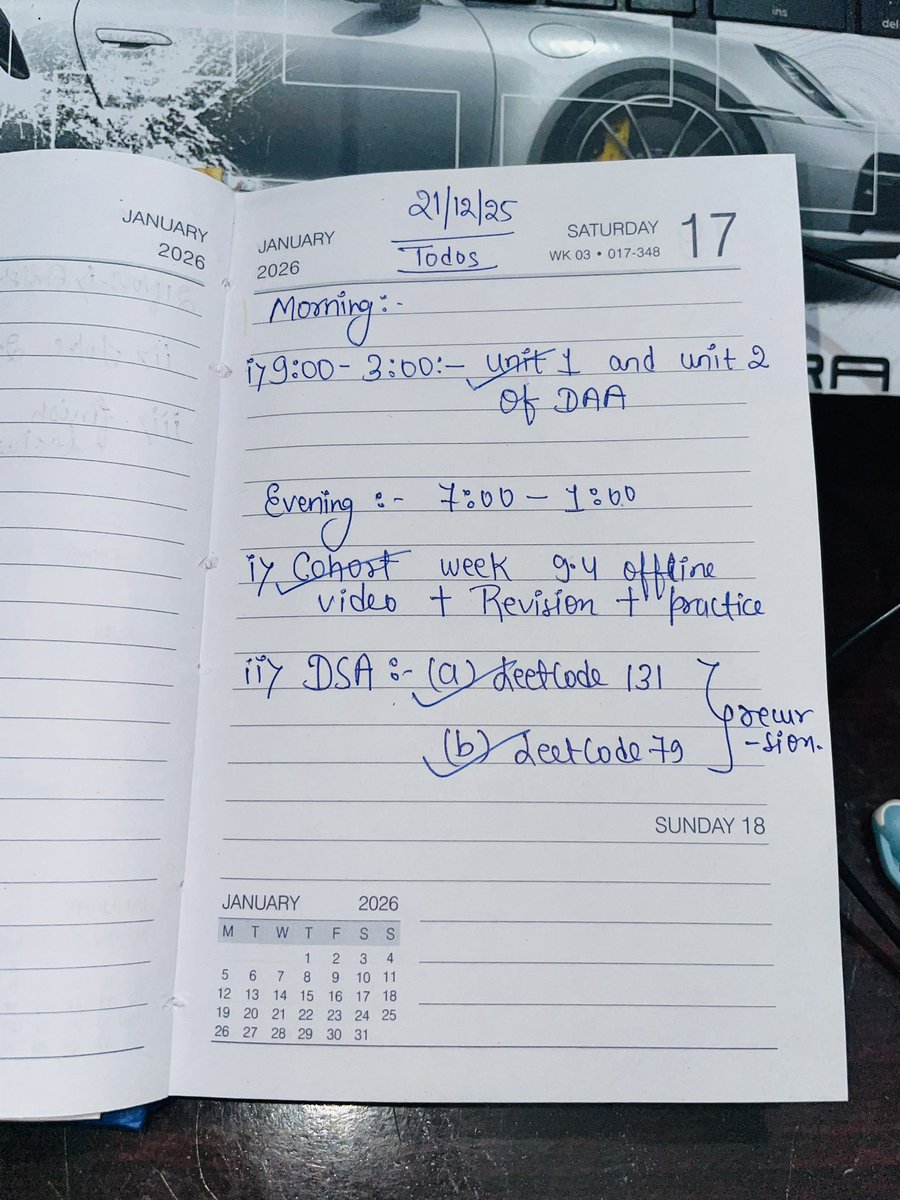 ins
del
JANUARY
2026
21/12/25
JANUARY
2026
Todos
SATURDAY 17
WK 03 • 017-348
Morning :-
i> 9:00 - 3:00 :- unit 1 and unit 2
of DAA
Evening :- 7:00 - 1:00
i> Cohost week 9.4 offline
video + Revision + practice
ii> DSA :- (a) LeetCode 131
(b) LeetCode 79
recur
-sion.
SUNDAY 18
JANUARY 2026
M T W T F S S
1 2 3 4
5 6 7 8 9 10 11
12 13 14 15 16 17 18
19 20 21 22 23 24 25
26 27 28 29 30 31